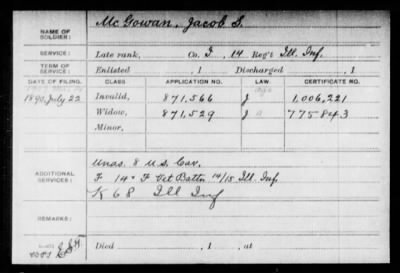 NAME OF SOLDIER: McGowan, Jacob S.
SERVICE: Late rank, Co. F, 14 Reg't Ill. Inf.
TERM OF SERVICE: Enlisted , 1 Discharged , 1
DATE OF FILING. CLASS. APPLICATION NO. LAW. CERTIFICATE NO.
1890, July 22 Invalid, 871,566 J 1,006,221
Widow, 871,529 J 775843
Minor,
ADDITIONAL SERVICES: Unas. 8 U.S. Cav.
F 14 " F Vet Battn 14/15 Ill. Inf.
K 68 Ill Inf
REMARKS:
Died , 1 , at